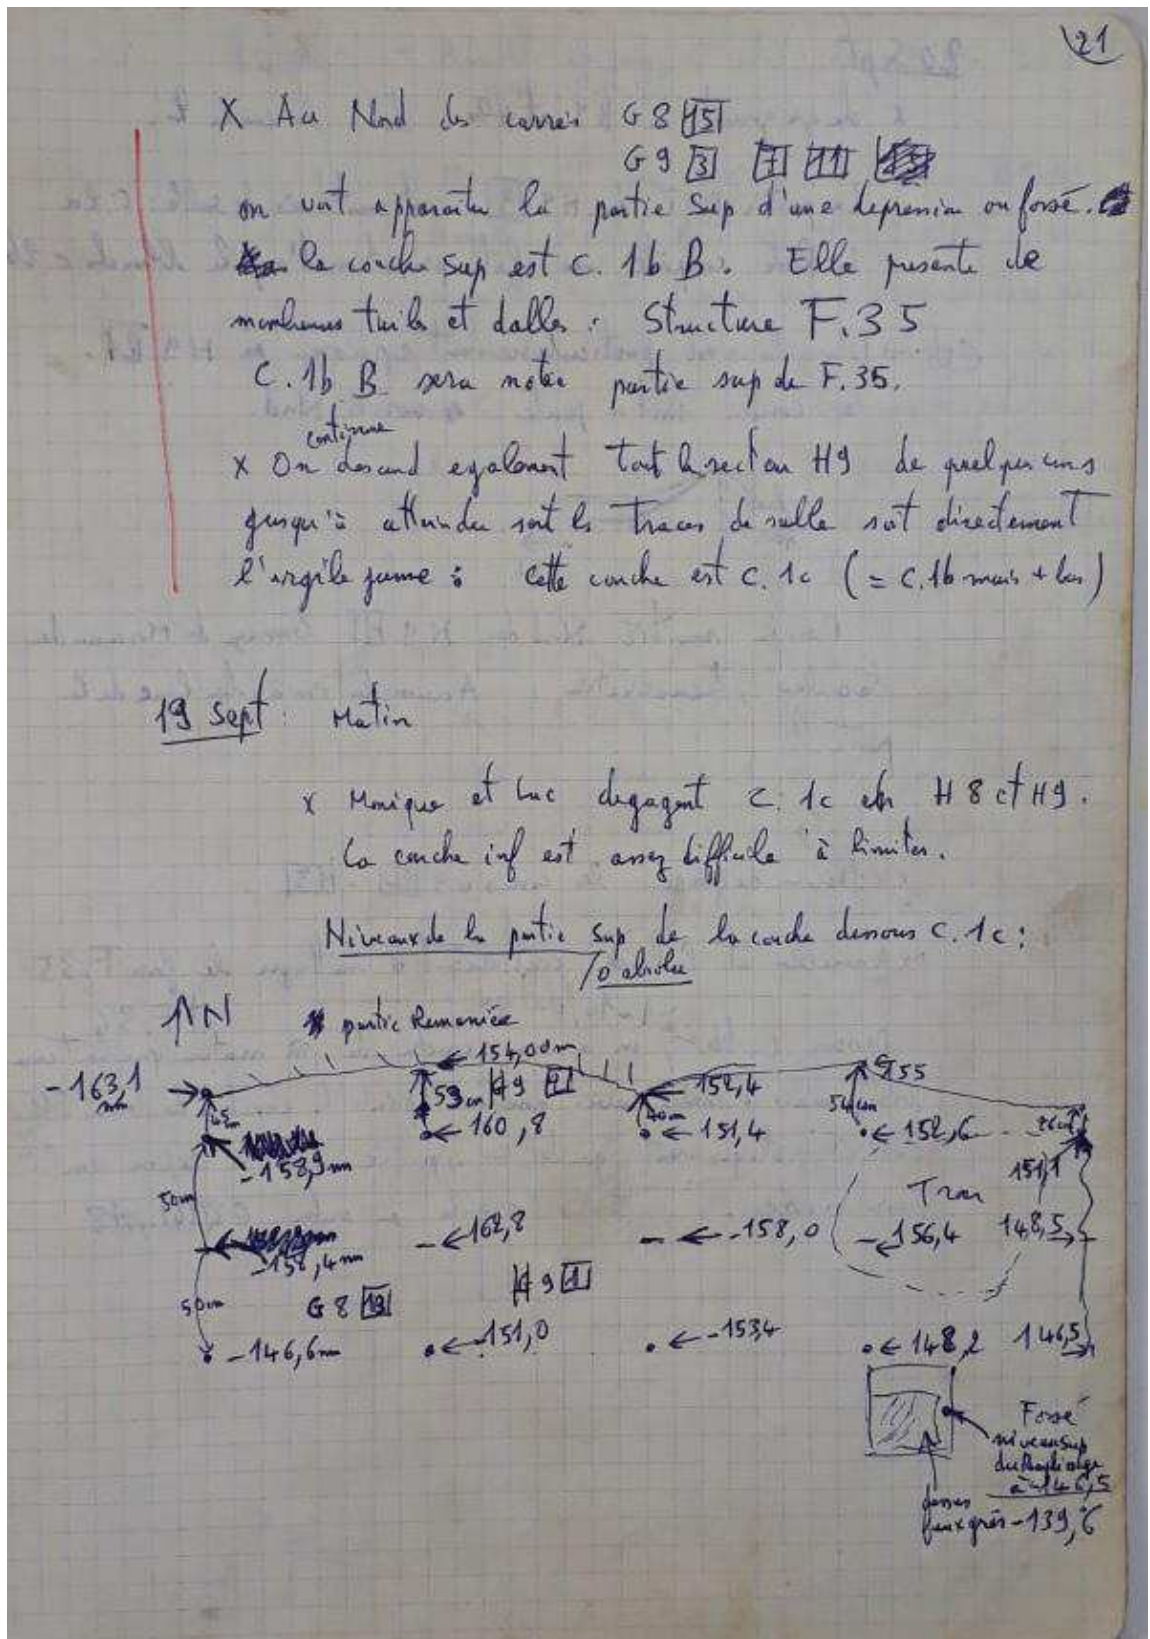 21
X Au Nord des carrés G8 15
G9 3 7 11
on voit apparaitre la partie Sup d'une depression ou fossé.
la couche sup est C. 1b B. Elle presente de
nombreuses tuiles et dalles : Structure F.35
C. 1b B sera notre partie sup de F.35.
continue
x On descend egalement tout le secteur H9 de quelques cms
jusqu'à atteindre soit les traces de sable soit directement
l'argile jaune : Cette couche est C. 1c (= C.1b mais + bas)
19 Sept : Matin
x Monique et Luc degagent C. 1c en H8 et H9.
La couche inf est assez difficile à limiter.
Niveaux de la partie Sup de la couche dessous C. 1c :
/0 absolu
↑N partie Remaniée
-163,1 154,00m 155
53cm 9 2 152,4 54cm
45 40cm 26cm
160,8 151,4 152,6
-158,9 151,1
50cm Trou
162,8 -158,0 -156,4 148,5
-158,4
9 1
50cm G8 13
-146,6 -151,0 -153,4 148,2 146,5
Fossé
niveau sup
à -146,5
-139,6